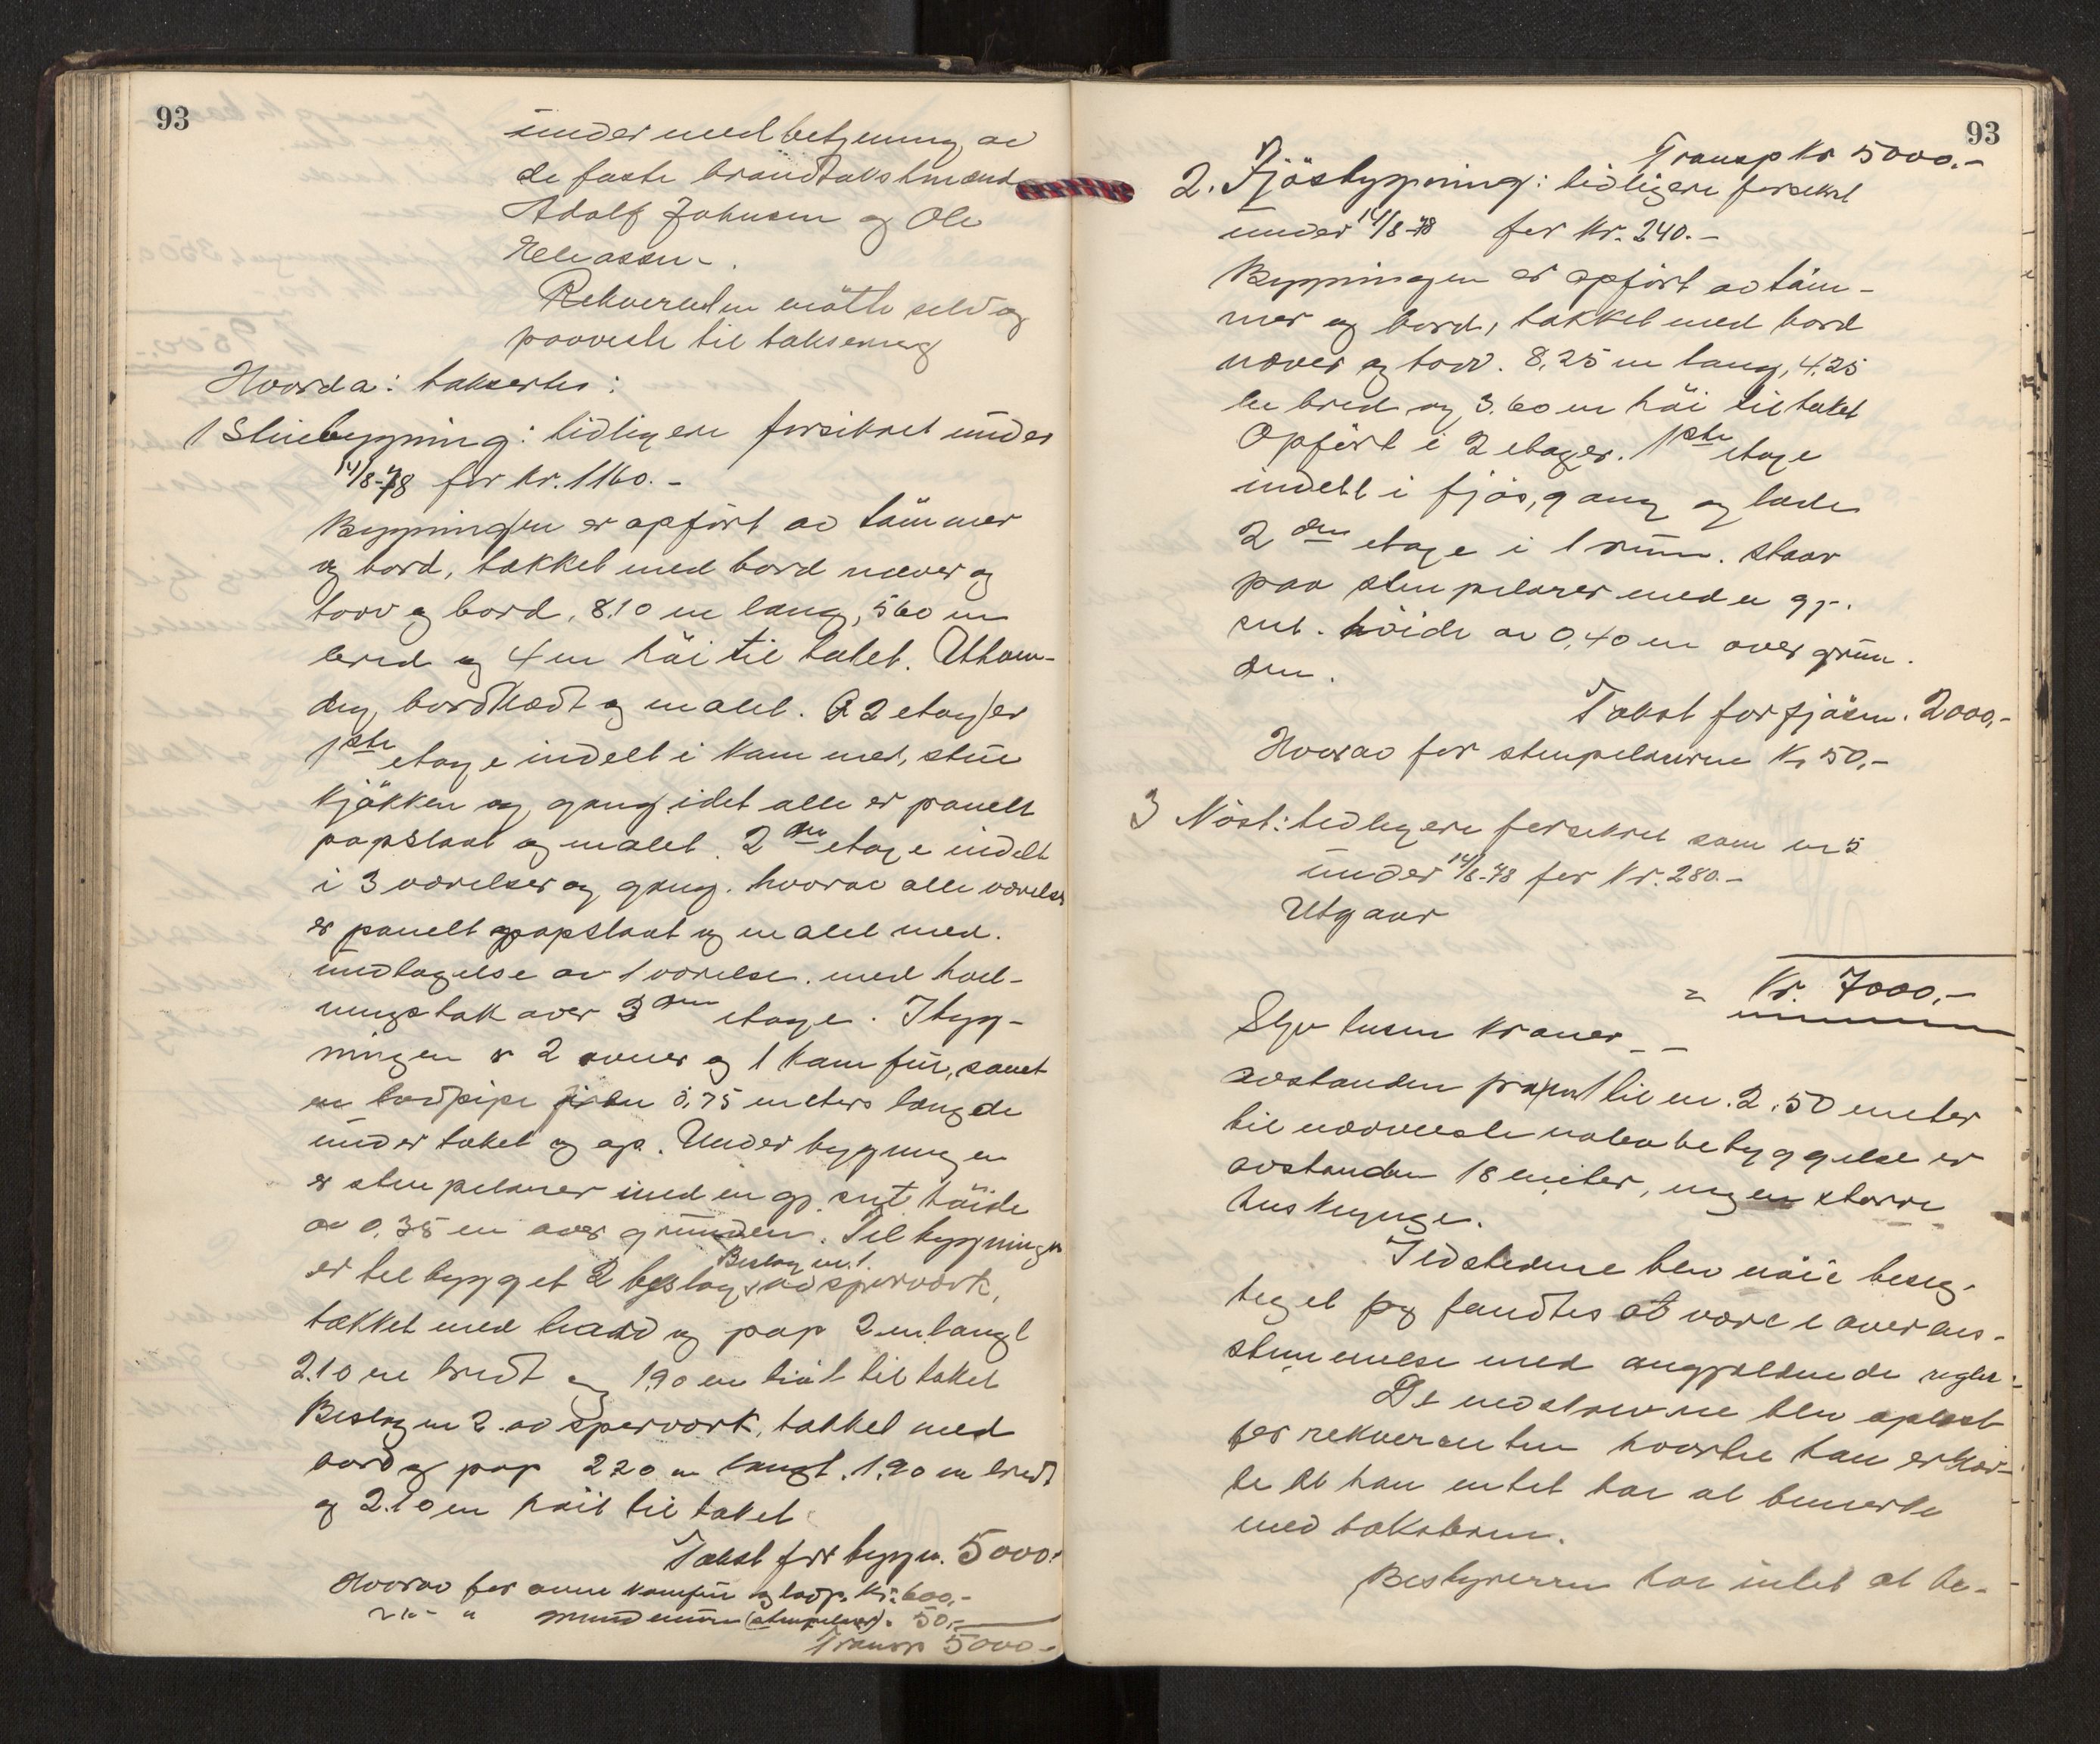 93
under medbetjening av
de faste brandtakstmænd
Adolf Johnsen og Ole
Eliassen.
Rekverenten møtte selv og
paaviste til taksering
Hvorda: taksertes:
1 Stuebygning: tidligere forsikret under
14/8-78 for kr. 1160.-
Bygningen er opført av tømmer
og bord, tækket med bord næver og
torv og bord, 8.10 m lang, 5 60 m
bred og 4 m høi til taket. Utven-
dig bordklædt og malet. 2 etager
1ste etage indelt i kammer, stue
kjøkken og gang, idet alle er panelt
papslaat og malet. 2den etage indelt
i 3 værelser og gang. hvorav alle værelser
er panelt papslaat og malet med
undtagelse av 1 værelse. med hvel-
ningstak over 3den etage. I byg-
ningen er 2 ovner og 1 kamfur, samt
en lodpipe 8,75 meters længde
under taket og op. Under bygningen
er stenpelarer med en gj. snt. høide
av 0,35 m over grunden. Til bygningen
Beslag nr. 1.
er tilbygget 2 beslag, av spærværk,
tækket med bord og pap 2 m langt
2.10 m bredt og 1,90 m høit til taket
Beslag nr 2. av sperværk, tækket med
bord og pap 2 20 m langt. 1,90 m bredt
og 2.10 m høit til taket
Takst for bygn. 5000.-
Hvorav for ovne kamfur og lodp. kr. 600,-
" grundmuren (stenpelarer). 50,-
Transp 5000.-
93
Transp kr 5000.-
2. Fjøsbygning: tidligere forsikret
under 14/8-78 for kr. 240.-
Bygningen er opført av tøm-
mer og bord, tækket med bord
næver og torv. 8,25 m lang, 4,25
m bred og 3.60 m høi til taket
Opført i 2 etager. 1ste etage
indelt i fjøs, gang og lade
2den etage i 1 rum. Staar
paa stenpelarer med en gj.
snt. høide av 0,40 m over grun-
den.
Takst for fjøsen. 2000,-
Hvorav for stenpelarerne kr 50,-
3 Nøst: tidligere forsikret som nr 5
under 14/8-78 for kr. 280.-
Utgaar
= Kr. 7000,-
Syv tusen kroner
avstanden fra nr 1 til nr. 2. 50 meter
til nærmeste nabobebyggelse er
avstanden 18 meter, ingen større
husklynge.
Ildstederne blev nøie besig-
tiget og fandtes at være i overens-
stemmelse med angjeldende regler.
Det nedskrevne blev oplæst
for rekverenten hvortil han erklær-
te at han intet har at bemerke
med taksterne.
Bestyreren har intet at be-